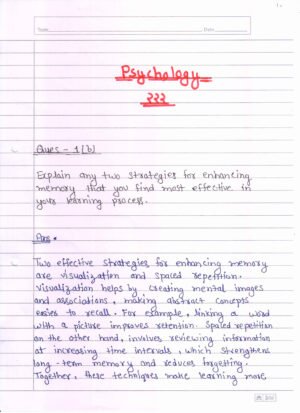 Topic
Date
Psychology
222
Ques - 1(b)
Explain any two strategies for enhancing
memory that you find most effective in
your learning process.
Ans.
Two effective strategies for enhancing memory
are visualization and spaced repetition.
Visualization helps by creating mental images
and associations, making abstract concepts
easier to recall. For example, linking a word
with a picture improves retention. Spaced repetition
on the other hand, involves reviewing information
at increasing time intervals, which strengthens
long-term memory and reduces forgetting.
Together, these techniques make learning more